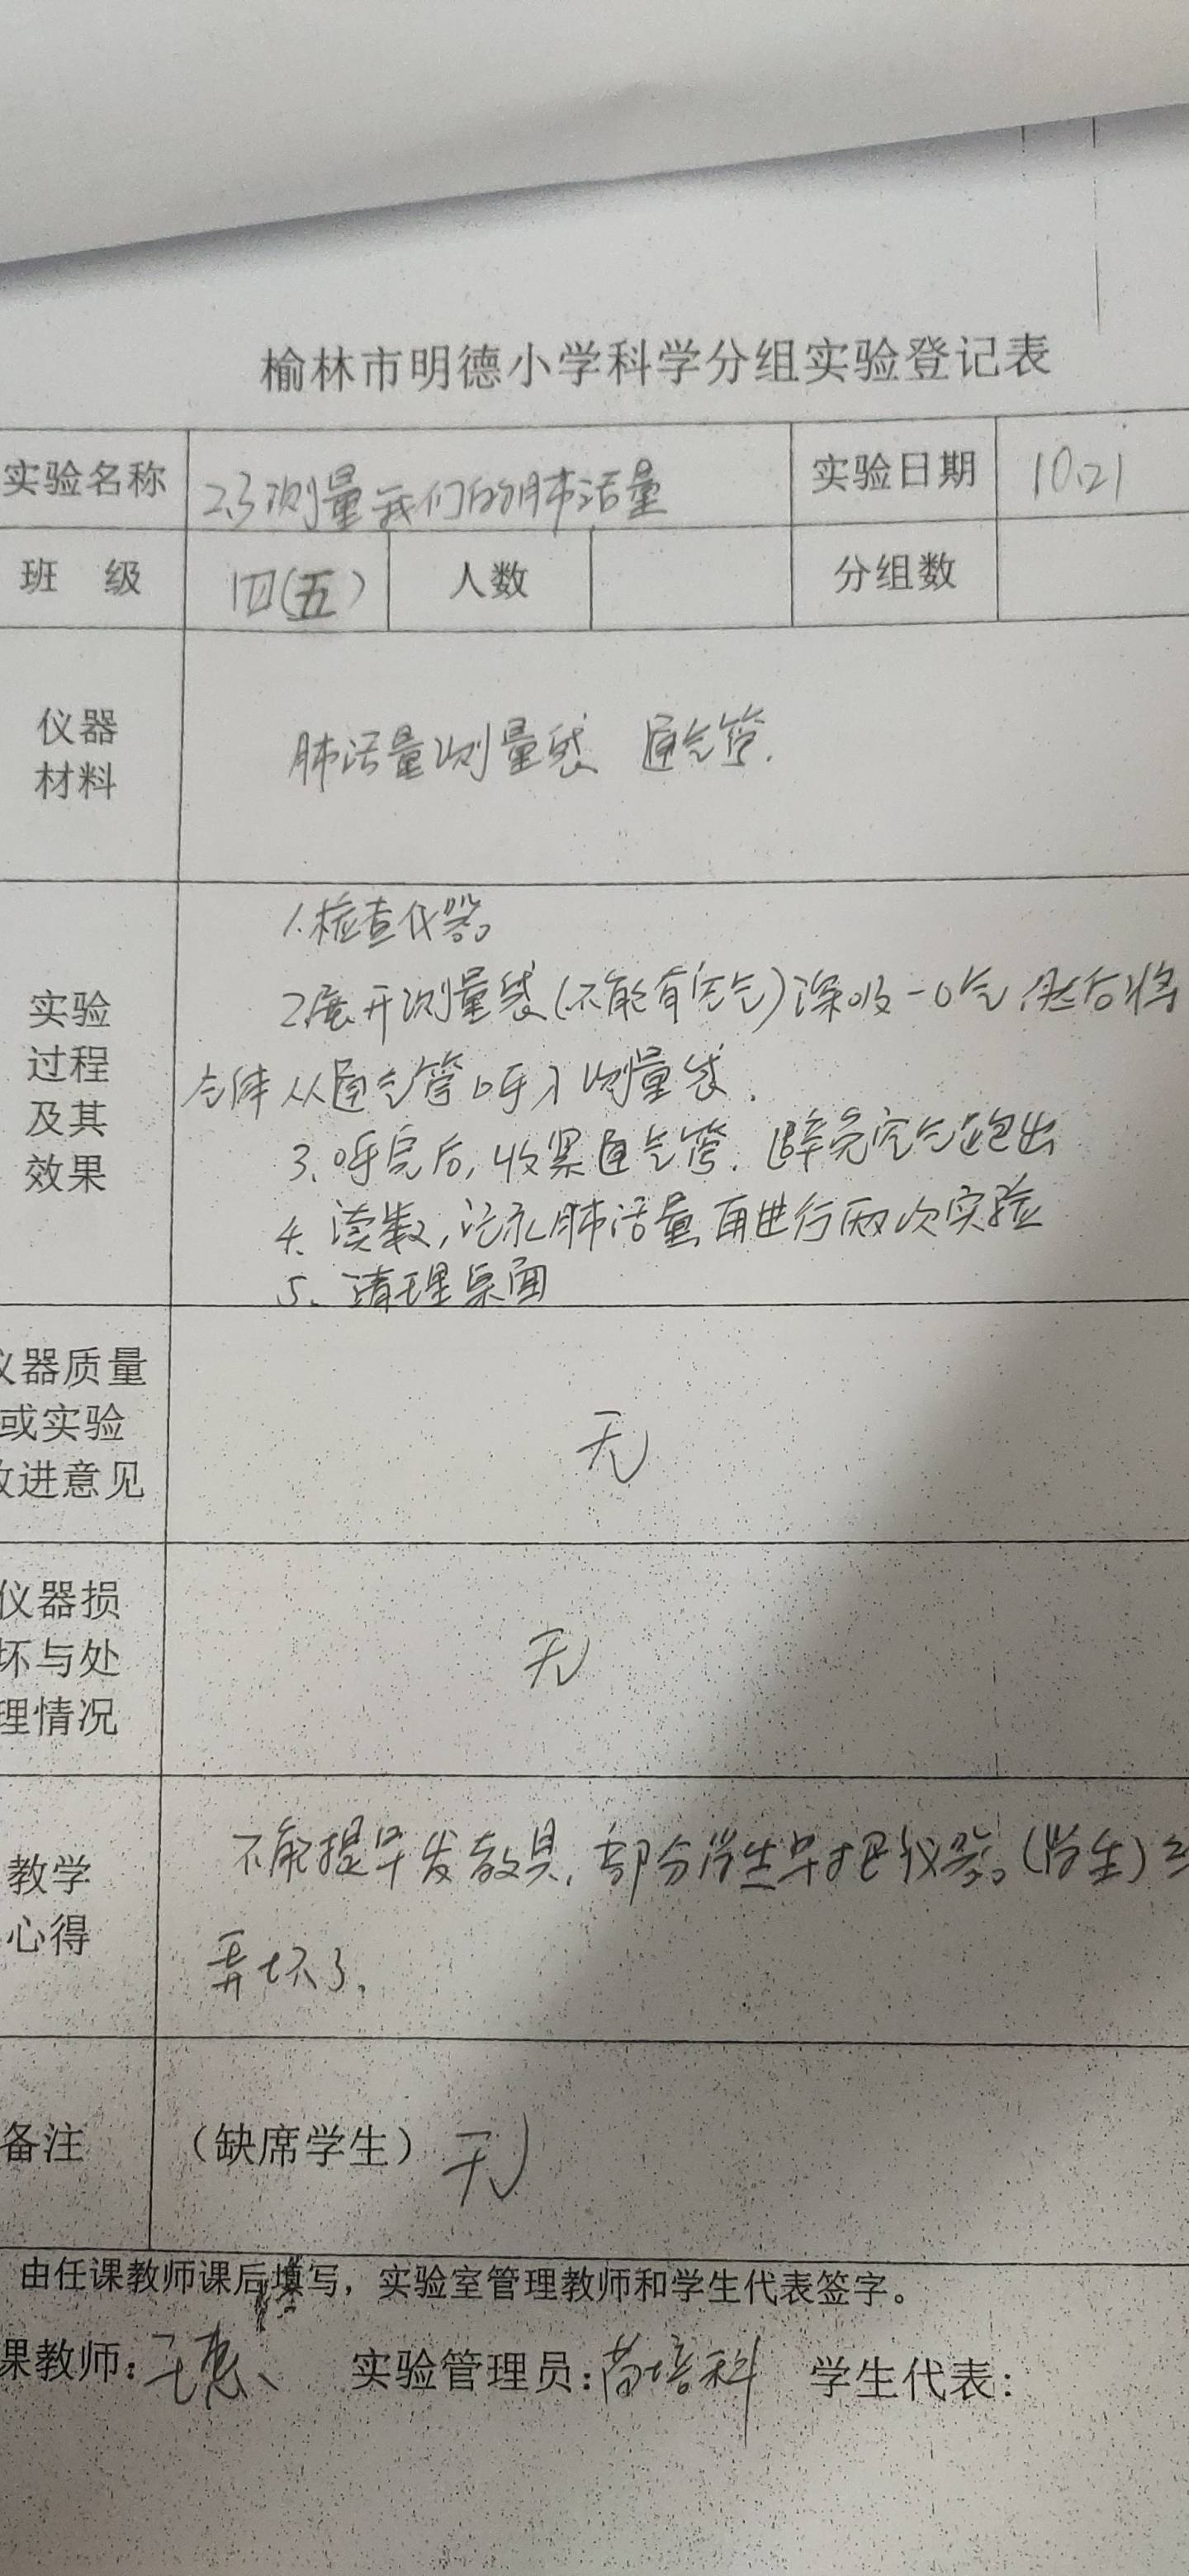 榆林市明德小学科学分组实验登记表
实验名称 2.3测量我们的肺活量 实验日期 10.21
班 级 四(五) 人数 分组数
仪器
材料
肺活量测量袋 通气管.
1.检查仪器。
2.展开测量袋(不能有空气)深吸一口气,然后将
气体从通气管呼入测量袋.
3、呼完后,收紧通气管.避免空气跑出
4、读数,记录肺活量,再进行两次实验
5、清理桌面
实验
过程
及其
效果
仪器质量
或实验
改进意见
无
仪器损
坏与处
理情况
无
教学
心得
不能提早发教具,部分学生早把仪器。(学生)
弄坏了.
备注 (缺席学生) 无
由任课教师课后填写,实验室管理教师和学生代表签字。
课教师: 实验管理员: 培科 学生代表: